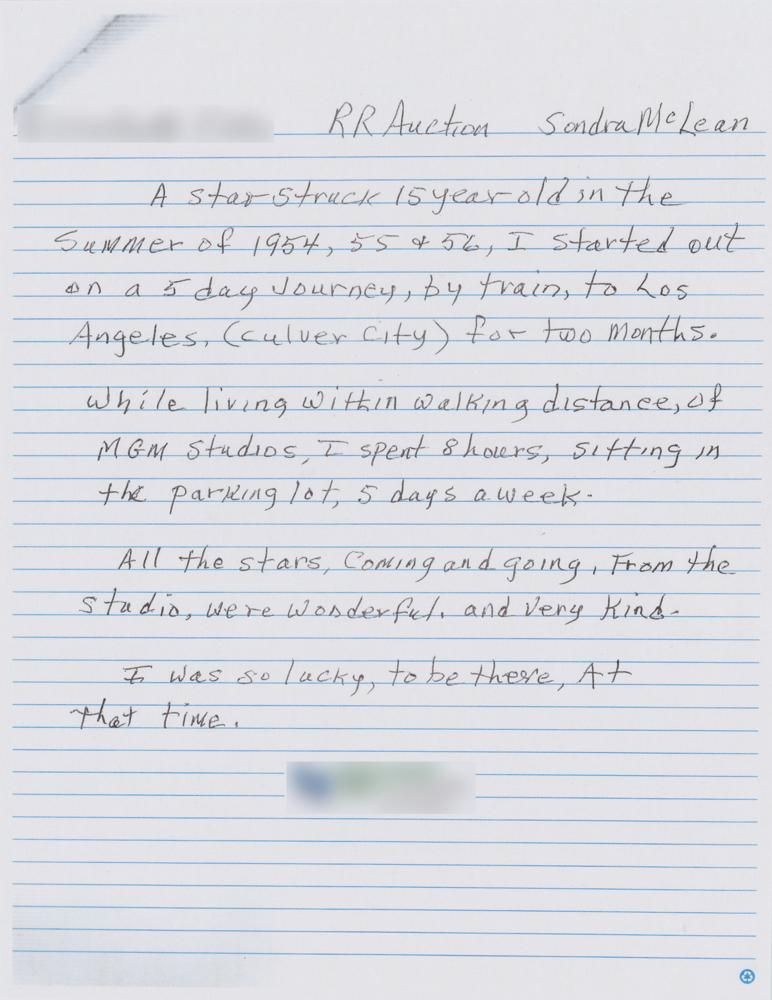 RR Auction Sondra McLean
A star struck 15 year old in the
Summer of 1954, 55 & 56, I started out
on a 5 day Journey, by train, to Los
Angeles, (Culver City) for two months.
While living within walking distance, of
MGM Studios, I spent 8 hours, sitting in
the parking lot, 5 days a week.
All the stars, Coming and going, From the
studio, were wonderful. and very kind.
I was so lucky, to be there, At
that time.